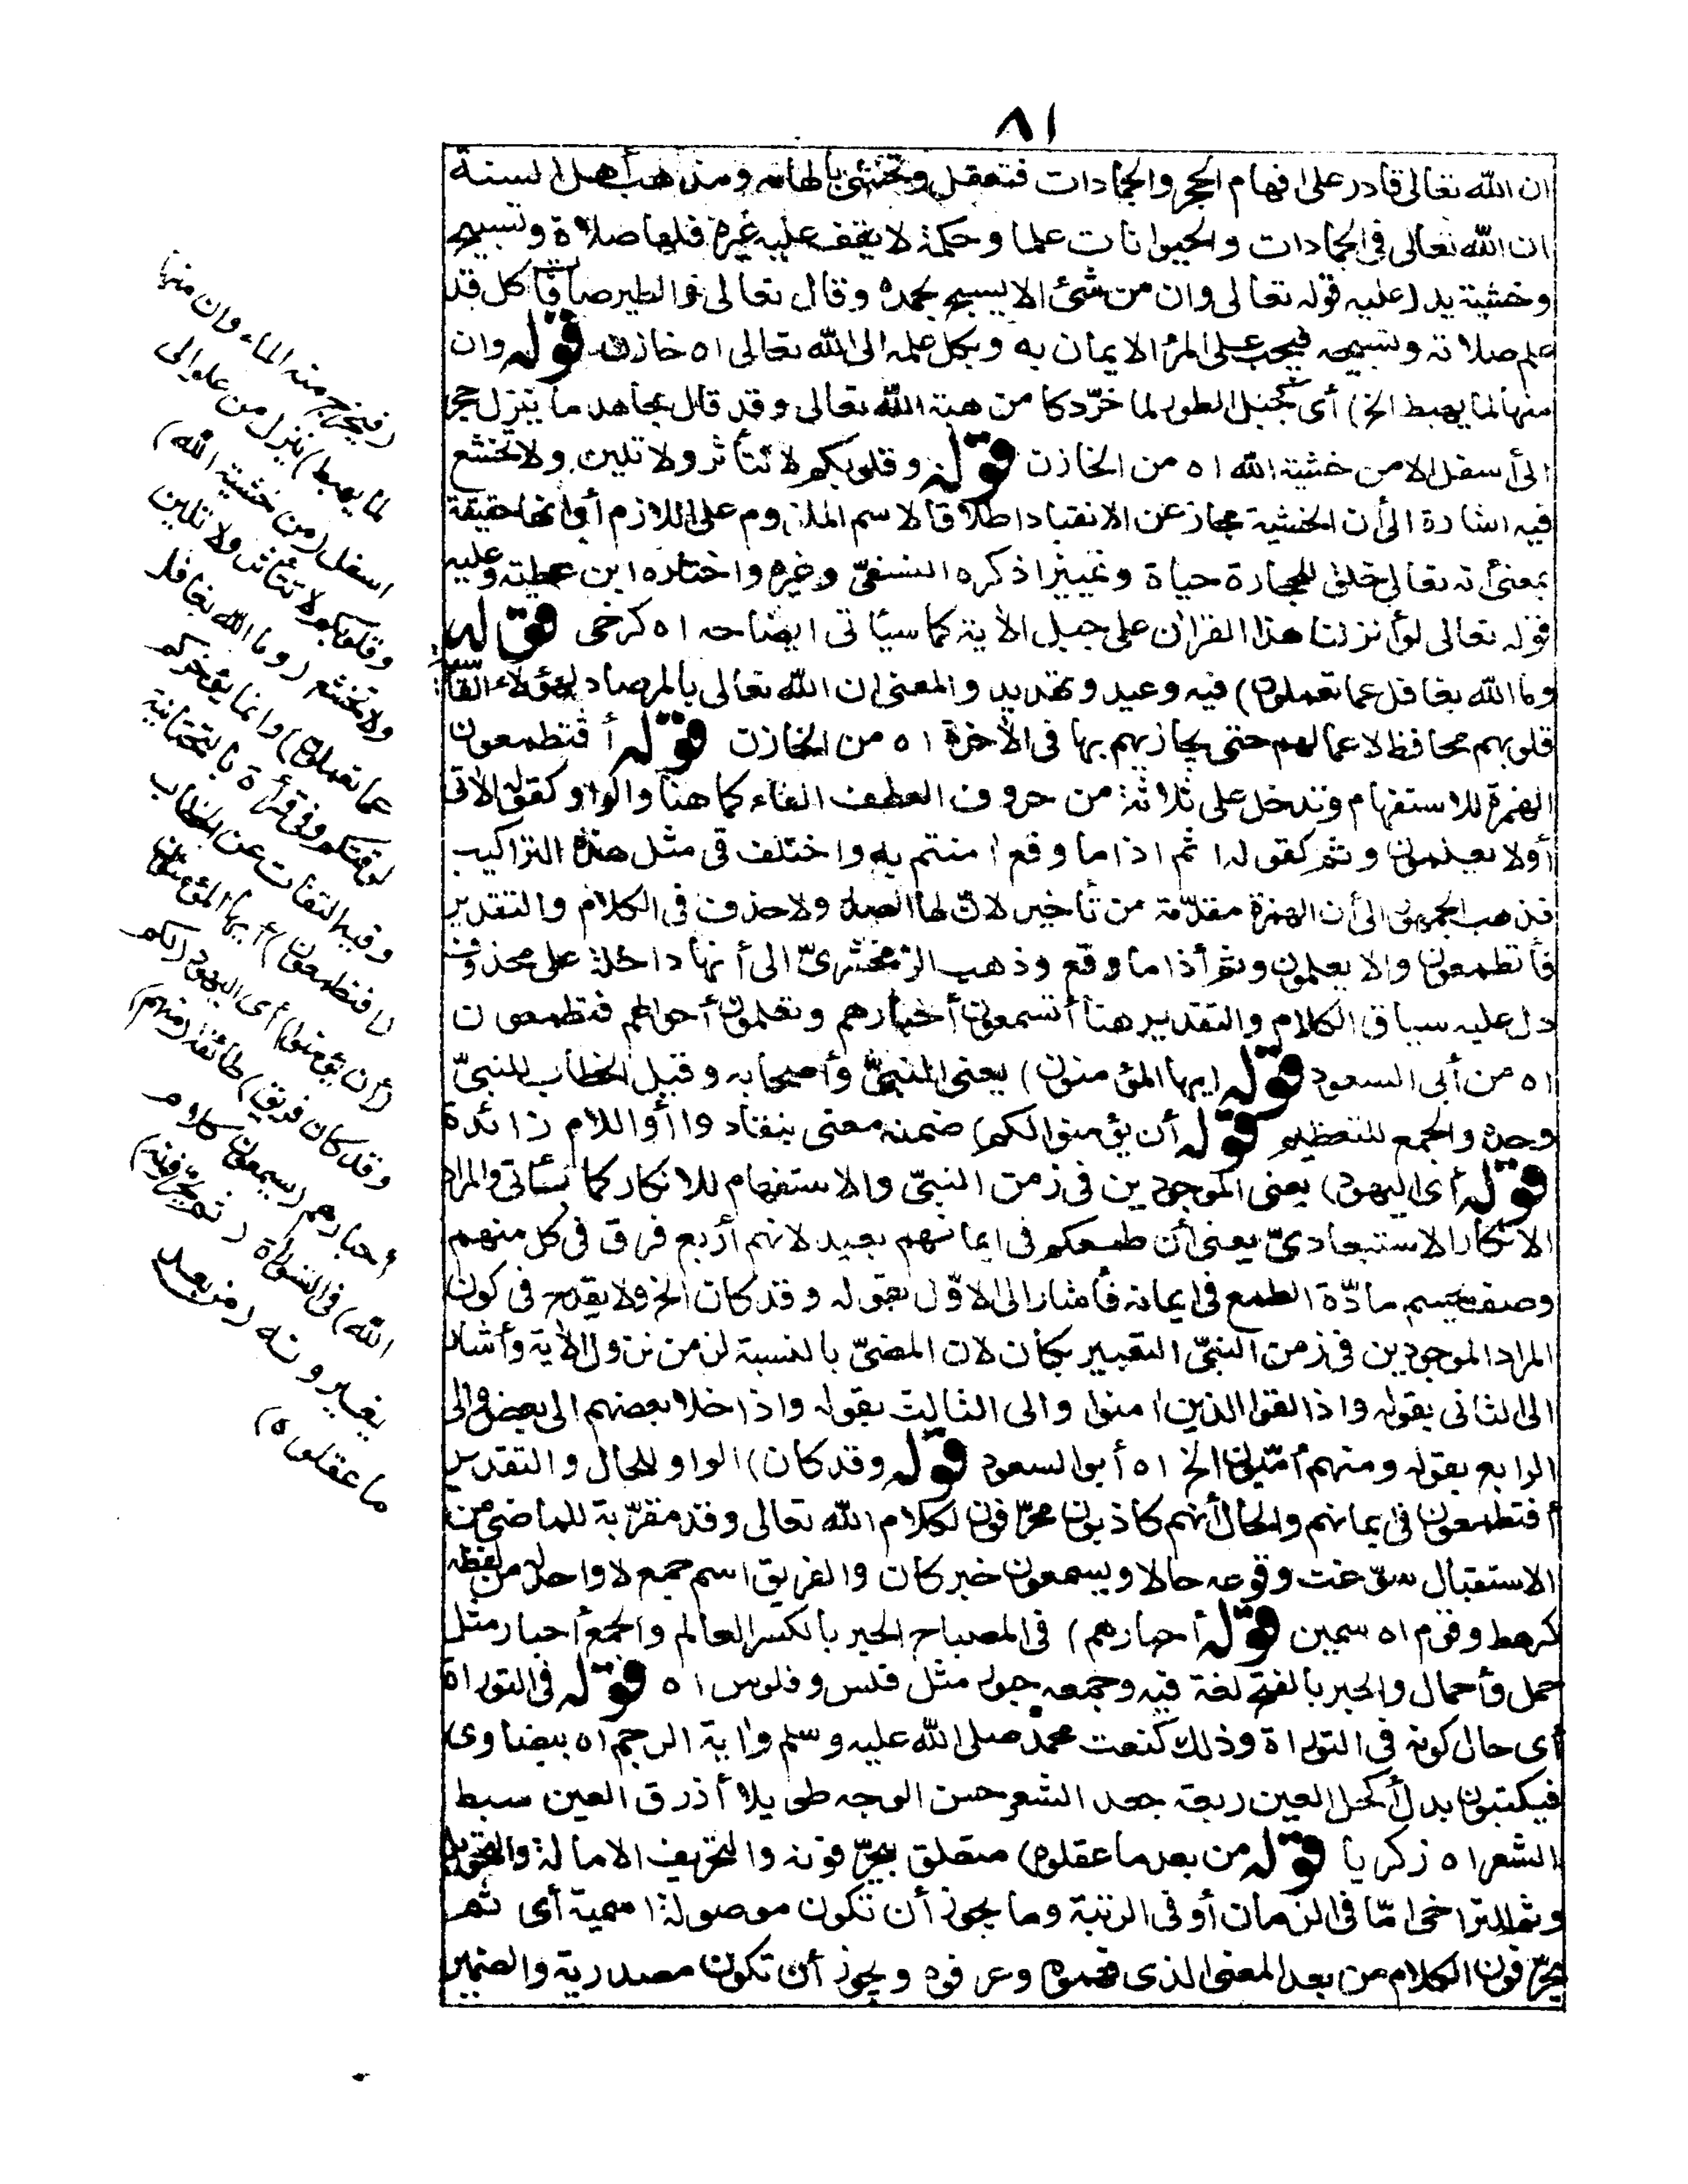 ٨١
ان الله تعالى قادر على افهام الحجر والجمادات فتعقل وتخشى بالهامه ومذهب أهل السنة
ان الله تعالى فى الجمادات والحيوانات علما وحكمة لا يقف عليه غيره فلها صلاة وتسبيح
وخشية يدل عليه قوله تعالى وان من شئ الا يسبح بحمده وقال تعالى والطير صافات كل قد
علم صلاته وتسبيحه فيجب على المرء الايمان به ويكل علمه الى الله تعالى اه خازن قوله وان
منها لما يهبط الخ) أى كجبل الطور لما خرّ دكا من هيبة الله تعالى وقد قال مجاهد ما ينزل حجر
الى أسفل الا من خشية الله اه من الخازن قوله وقلوبكم لا تتأثر ولا تلين ولا تخشع
فيه اشارة الى أن الخشية مجاز عن الانقياد اطلاقا لاسم الملزوم على اللازم أو انها حقيقة
بمعنى أنه تعالى خلق للحجارة حياة وتمييزا ذكره النسفىّ وغيره واختاره ابن عطية وعليه
قوله تعالى لو أنزلنا هذا القرآن على جبل الآية كما سيأتى ايضاحه اه كرخى قوله
وما الله بغافل عما تعملون) فيه وعيد وتهديد والمعنى ان الله تعالى بالمرصاد لهؤلاء القاسية
قلوبهم محافظ لاعمالهم حتى يجازيهم بها فى الآخرة اه من الخازن قوله أفتطمعون
الهمزة للاستفهام وتدخل على ثلاثة من حروف العطف الفاء كما هنا والواو كقوله الآتى
أولا يعلمون وثم كقوله اثم اذا ما وقع امنتم به واختلف فى مثل هذه التراكيب
فذهب الجمهور الى أن الهمزة مقدّمة من تأخير لانّ لها الصدر ولا حذف فى الكلام والتقدير
فأتطمعون وألا يعلمون وثم أذا ما وقع وذهب الزمخشرىّ الى أنها داخلة على محذوف
دل عليه سياق الكلام والتقدير هنا أتسمعون أخبارهم وتعلمون أحوالهم فتطمعون
اه من أبى السعود قوله ايها المؤمنون) يعنى النبىّ وأصحابه وقيل الخطاب للنبىّ
وحده والجمع للتعظيم قوله أن يؤمنوا لكم) ضمنه معنى ينقادوا أو اللام زائدة
قوله أى اليهود) يعنى الموجودين فى زمن النبىّ والاستفهام للانكار كما سيأتى والمراد
الانكار الاستبعادىّ يعنى أن طمعكم فى ايمانهم بعيد لانهم أربع فرق فى كل منهم
وصف يحسم مادّة الطمع فى ايمانه فأشار الى الاوّل بقوله وقد كان الخ ولا يقدح فى كون
المراد الموجودين فى زمن النبىّ التعبير بكان لان المضىّ بالنسبة لزمن نزول الآية وأشار
الى الثانى بقوله واذا لقوا الذين امنوا والى الثالث بقوله واذا خلا بعضهم الى بعض والى
الرابع بقوله ومنهم أمّيون الخ اه أبو السعود قوله وقد كان) الواو للحال والتقدير
أفتطمعون فى ايمانهم والحال أنهم كاذبون محرّفون لكلام الله تعالى وقد مقرّبة للماضى من
الاستقبال سوّغت وقوعه حالا ويسمعون خبر كان والفريق اسم جمع لا واحد له من لفظه
كرهط وقوم اه سمين قوله أحبارهم) فى المصباح الحبر بالكسر العالم والجمع أحبار مثل
حمل وأحمال والحبر بالفتح لغة فيه وجمعه حبور مثل فلس وفلوس اه قوله فى التوراة
أى حال كونه فى التوراة وذلك كنعت محمد صلى الله عليه وسلم واية الرجم اه بيضاوى
فيكتبون بدل أكحل العين ربعة جعد الشعر حسن الوجه طويلا أزرق العين سبط
الشعر اه زكريا قوله من بعد ما عقلوه) متعلق بيحرّفونه والتحريف الامالة والتحويل
وثم للتراخى امّا فى الزمان أو فى الرتبة وما يجوز أن تكون موصولة اسمية أى ثم
يحرّفون الكلام من بعد المعنى الذى فهموه وعرفوه ويجوز أن تكون مصدرية والضمير
(فيخرج منه الماء وان منها
لما يهبط) ينزل من علو الى
اسفل (من خشية الله)
وقلوبكم لا تتأثر ولا تلين
ولا تخشع (وما الله بغافل
عما تعملون) وانما يؤخركم
لوقتكم وفى قرأة بالتحتانية
وفيه التفات عن الخطاب
(افتطمعون) أيها المؤمنون
(أن يؤمنوا) أى اليهود (لكم
وقد كان فريق) طائفة (منهم)
أحبارهم (يسمعون كلام
الله) فى التوراة (ثم يحرفونه)
يغيرونه (من بعد
ما عقلوه)